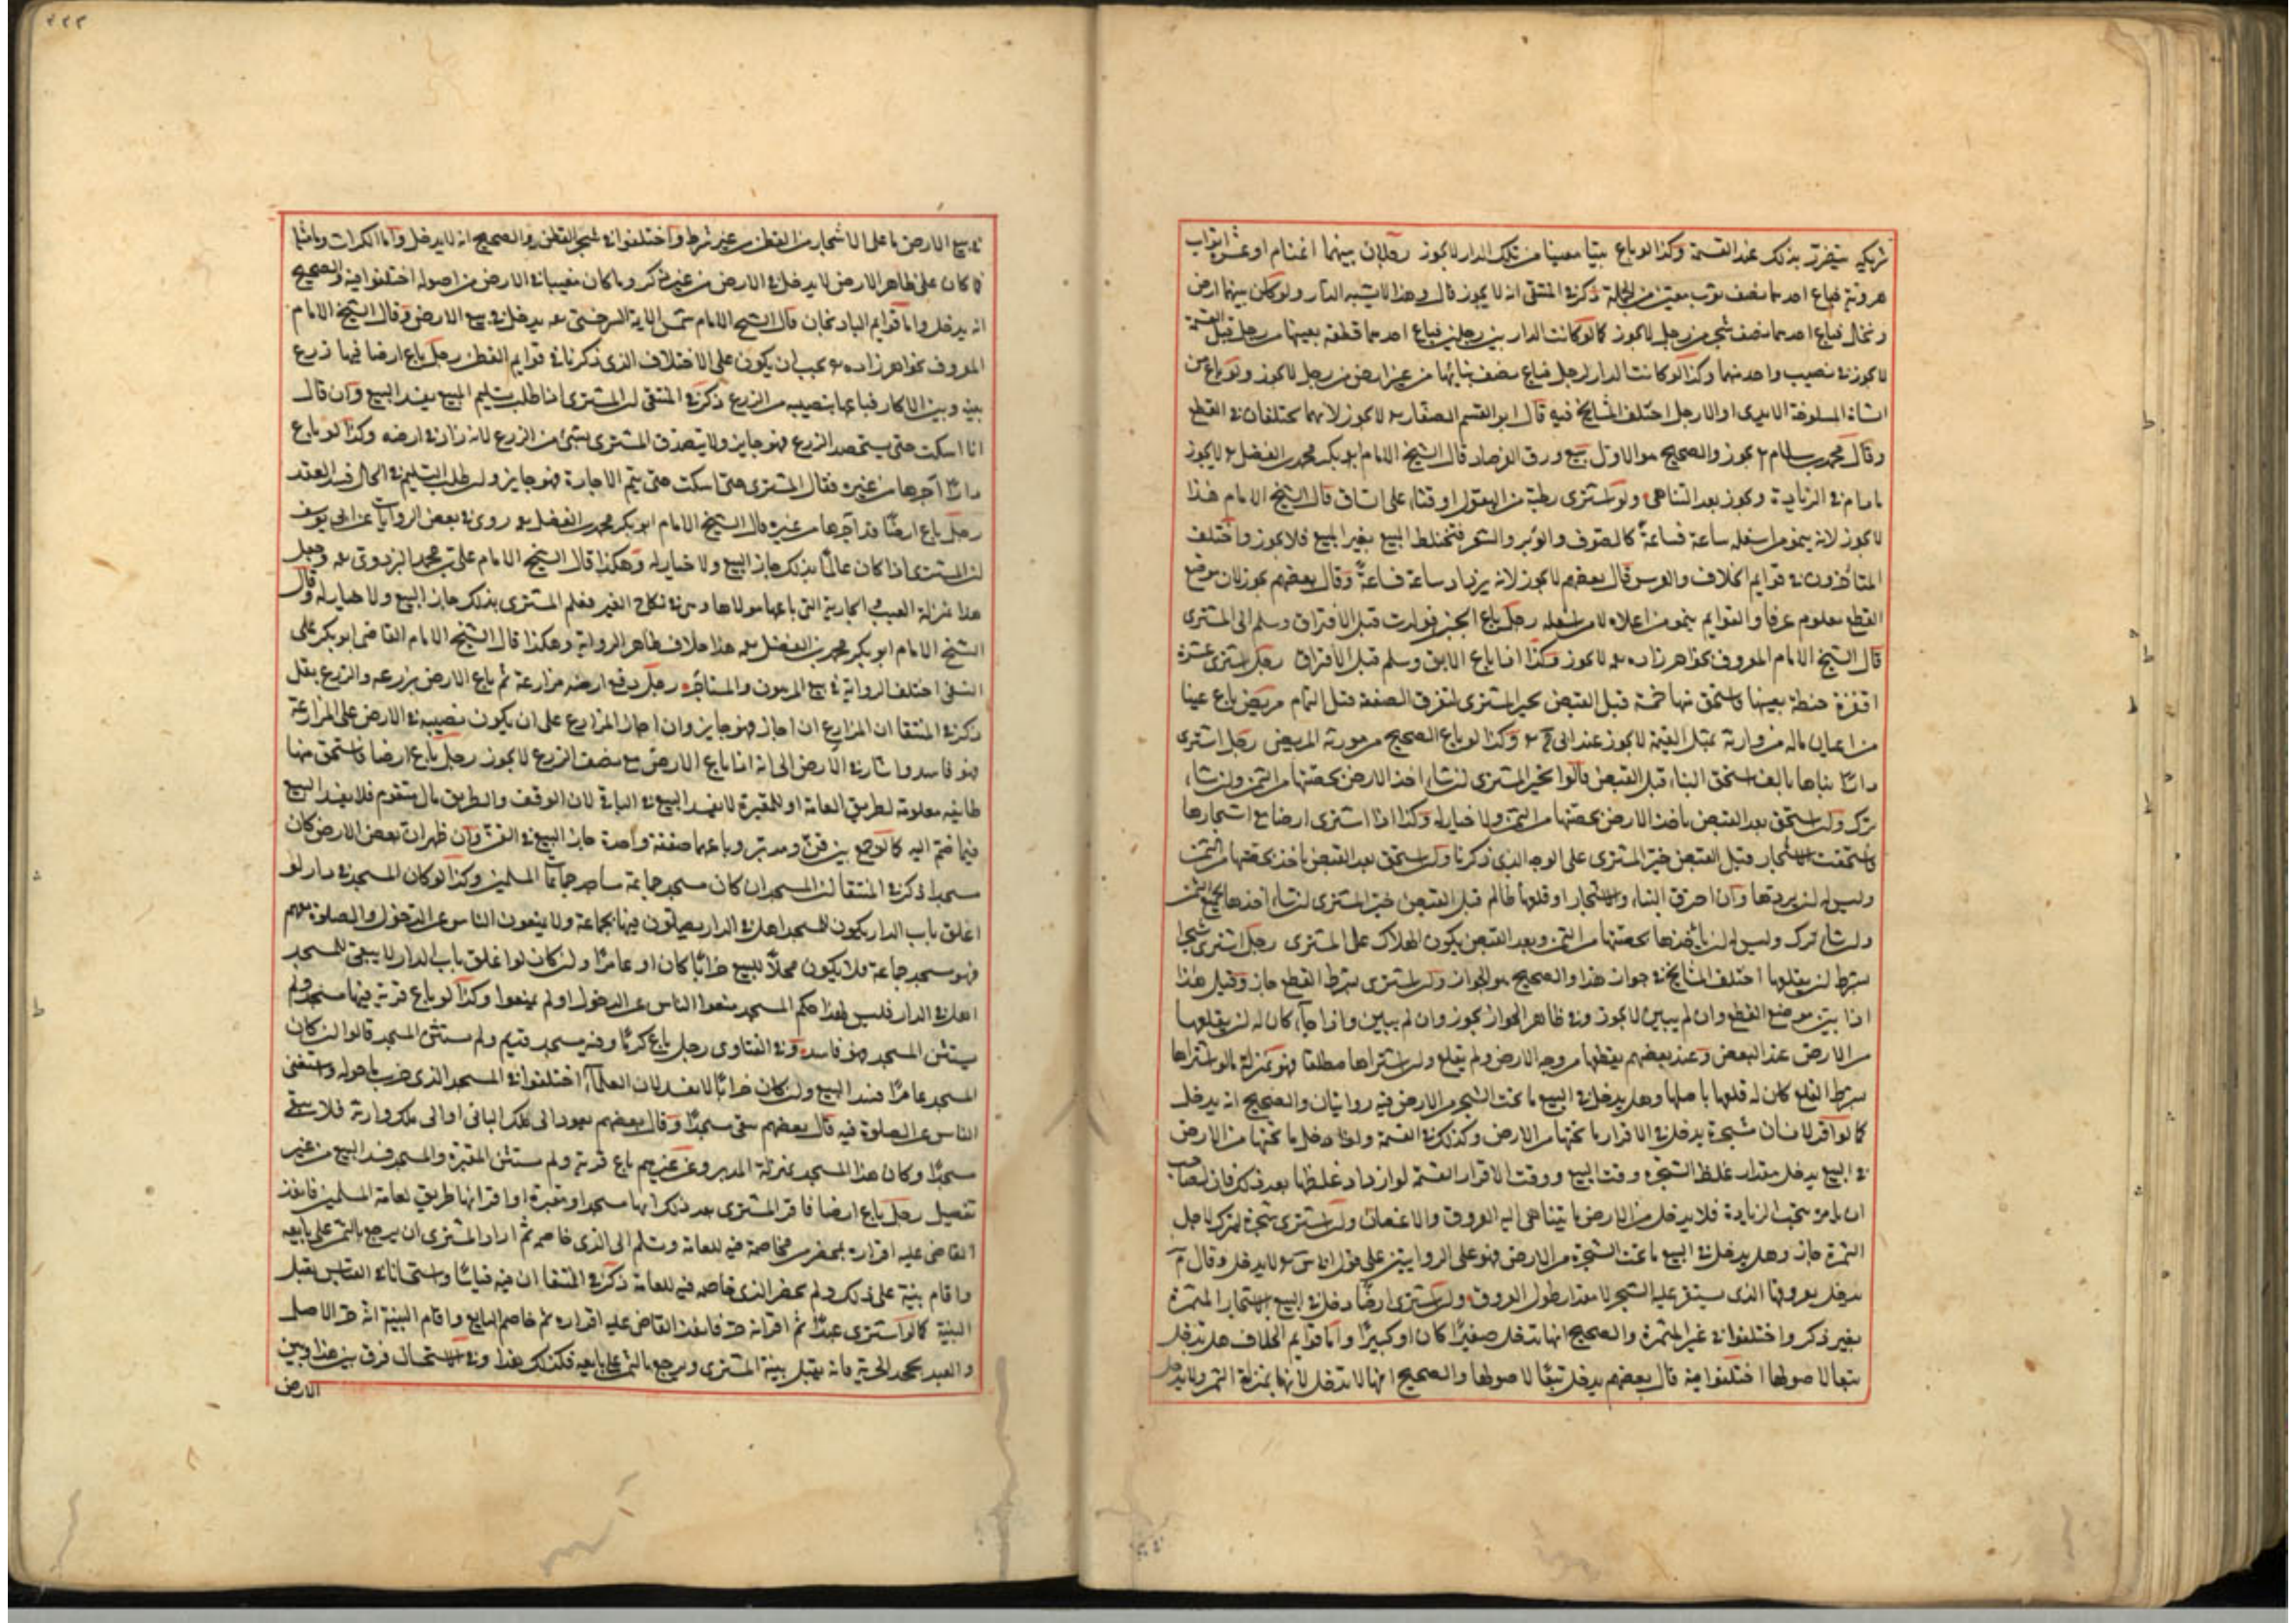 شريكه يتضرر بذلك عند القسمة وكذا لو باع بيتا معينا من تلك الدار لا يجوز رجلان بينهما اغنام او عشرة اثواب
هروية فباع احدهما نصف ثوب معين من الجملة ذكر في المنتقى انه لا يجوز قال وهذا لا يشبه الدار ولو كان بينهما ارض
ونخل فباع احدهما نصف شجر من رجل لا يجوز كما لو كانت الدار بين رجلين فباع احدهما قطعة بعينها من رجل قبل القسمة
لا يجوز في نصيب واحد منهما وكذا لو كانت الدار لرجل فباع نصف بنائها من غير ارض من رجل لا يجوز ولو باع من
الشاة المسلوخة الايدى او الارجل اختلف المشايخ فيه قال ابو القسم الصفار لا يجوز لانهما يختلفان في القطع
وقال محمد بن سلام يجوز والصحيح هو الاول بيع ورق الفرصاد قال الشيخ الامام ابو بكر محمد بن الفضل لا يجوز
ما دام في الزيادة ويجوز بعد التناهى ولو اشترى رطبة من البقول او قثاء على الساق قال الشيخ الامام هذا
لا يجوز لانه ينمو من اسفله ساعة فساعة كالصوف والوبر والشعر فتختلط المبيع بغير المبيع فلا يجوز واختلف
المتأخرون في قوايم الخلاف والغرس قال بعضهم لا يجوز لانه يزداد ساعة فساعة وقال بعضهم يجوز لان موضع
القطع معلوم عرفا والقوايم ينمو من اعلاه لا من اسفله رجل باع الجنز فوارت قبل الافتراق وسلم الى المشترى
قال الشيخ الامام المعروف بخواهر زاده لا يجوز وكذا اذا باع الابق وسلم قبل الافتراق رجل اشترى عشرة
اقفزة حنطة بعينها فاستحق منها خمسة قبل القبض يخير المشترى لتفرق الصفقة قبل التمام مريض باع عينا
من اعيان ماله من وارثه بمثل القيمة لا يجوز عند ابى ح وكذا لو باع الصحيح من مورثه المريض رجل اشترى
دارا ببناها بالف فاستحق البناء قبل القبض قالوا يخير المشترى ان شاء اخذ الارض بحصتها من الثمن وان شاء
ترك وان استحق بعد القبض ياخذ الارض بحصتها من الثمن ولا خيار له وكذا اذا اشترى ارضا مع اشجارها
فاستحقت الاشجار قبل القبض خير المشترى على الوجه الذى ذكرنا وان استحق بعد القبض ياخذ بحصتها من الثمن
وليس له ان يردها وان احترق البناء والاشجار او قلعها ظالم قبل القبض خير المشترى ان شاء اخذها بجميع الثمن
وان شاء ترك وليس له ان ياخذها بحصتها من الثمن وبعد القبض يكون الهلاك على المشترى رجل اشترى شجرا
بشرط ان يقلعها اختلف المشايخ في جواز هذا والصحيح هو الجواز وان اشترى بشرط القطع جاز وقيل هذا
اذا بين موضع القطع وان لم يبين لا يجوز وفي ظاهر الجواز يجوز وان لم يبين واذا جاز كان له ان يقلعها
من الارض عند البعض وعند بعضهم يقطعها من وجه الارض ولم يقلع وان اشتراها مطلقا فهو بمنزلة ما لو اشتراها
بشرط القلع كان له قلعها باصلها وهل يدخل في البيع ما تحت الشجر من الارض فيه روايتان والصحيح انه يدخل
كما لو اقر لانسان شجرة يدخل في الاقرار ما تحتها من الارض وكذلك في القسمة ولو دخل ما تحتها من الارض
في البيع يدخل مقدار غلظ الشجرة وقت البيع ووقت الاقرار القسمة لو ازداد غلظها بعد ذلك فان لصاحب
ان يامره بنحت الزيادة فلا يدخل من الارض ما يتناهى اليه العروق والاغصان وان اشترى شجرة ليترك لاجل
الثمرة جاز وهل يدخل في البيع ما تحت الشجرة من الارض فهو على الروايتين على قول ابى س لا يدخل وقال م
يدخل بعروقها الذى يستقر عليه الشجر لا مقدار طول العروق وان اشترى ارضا دخل في البيع الاشجار المثمرة
بغير ذكر واختلفوا في غير المثمرة والصحيح انها تدخل صغيرا كان او كبيرا واما قوايم الخلاف هل تدخل
تبعا لاصولها اختلفوا فيه قال بعضهم يدخل تبعا لاصولها والصحيح انها لا تدخل لانها بمنزلة الثمر ولا يدخل
في بيع الارض ما على الاشجار من القطن من غير شرط واختلفوا في شجر القطن والصحيح انه لا يدخل واما الكراث وما اشبهه
فما كان على ظاهر الارض لا يدخل في الارض من غير ذكر وما كان مغيبا في الارض من اصوله اختلفوا فيه والصحيح
انه يدخل واما قوايم الباذنجان قال الشيخ الامام شمس الائمة السرخسى يدخل في بيع الارض وقال الشيخ الامام
المعروف بخواهر زاده يجب ان يكون على الاختلاف الذى ذكرنا في قوايم القطن رجل باع ارضا فيها زرع
بينه وبين الاكار فباعها بنصيبه من الزرع ذكر في المنتقى ان المشترى اذا طلب تسليم المبيع يفسد البيع وان قال
انا اسكت حتى يستحصد الزرع فهو جايز ولا يتصدق المشترى بشئ من الزرع لانه زاد في ارضه وكذا لو باع
دارا آجرها من غيره فقال المشترى حتى اسكت حتى يتم الاجارة فهو جايز وان طلب التسليم في الحال فسد العقد
رجل باع ارضا قد آجرها من غيره قال الشيخ الامام ابو بكر محمد بن الفضل روى في بعض الروايات عن ابى يوسف
ان المشترى اذا كان عالما بذلك جاز البيع ولا خيار له وهكذا قال الشيخ الامام على بن محمد البزدوى وجعل
هذا بمنزلة العيب في الجارية التى باعها مولاها وهى في نكاح الغير فعلم المشترى بذلك جاز البيع ولا خيار له وقال
الشيخ الامام ابو بكر محمد بن الفضل هذا خلاف ظاهر الرواية وهكذا قال الشيخ الامام القاضى ابو بكر على
النسفى اختلف الرواية في بيع المرهون والمستأجر رجل دفع ارضه مزارعة ثم باع الارض بزرعه والزرع بقل
ذكر في المنتقا ان المزارع ان اجاز فهو جايز وان اجاز المزارع على ان يكون نصيبه في الارض على المزارعة
فهو فاسد واشار في الارض الى انه اذا باع الارض مع نصف الزرع لا يجوز رجل باع ارضا فاستحق منها
طايفة معلومة لطريق العامة او للمقبرة لا يفسد البيع في الباقى لان الوقف والطريق مال متقوم فلا يفسد البيع
فيما ضم اليه كما لو جمع بين قن ومدبر وباعهما صفقة واحدة جاز البيع في القن وان ظهر ان بعض الارض كان
مسجدا ذكر في المنتقا ان المسجد ان كان مسجد جماعة ساير جماعات المسلمين وكذا لو كان المسجد في دار لو
اغلق باب الدار يكون للمسجد اهل في الدار يصلون فيها بجماعة ولا يمنعون الناس عن الدخول والصلوة معهم
فهو مسجد جماعة فلا يكون محلا للبيع خرابا كان او عامرا وان كان لو اغلق باب الدار لا يبقى للمسجد
اهل في الدار فليس لهذا حكم المسجد منعوا الناس عن الدخول او لم يمنعوا وكذا لو باع قرية فيها مسجد ولم
يستثن المسجد فهو فاسد وفي الفتاوى رجل باع كرما وفيه مسجد قديم ولم يستثن المسجد قالوا ان كان
المسجد عامرا فسد البيع وان كان خرابا لا يفسد لان العلماء اختلفوا في المسجد الذى خرب ما حوله واستغنى
الناس عن الصلوة فيه قال بعضهم يبقى مسجدا وقال بعضهم يعود الى ملك البانى او الى ملك وارثه فلا يبقى
مسجدا وكان هذا المسجد بمنزلة المدبر وعن غيرهم باع قرية ولم يستثن المقبرة والمسجد فسد البيع من غير
تفصيل رجل باع ارضا فاقر المشترى بعد ذلك انها مسجد او مقبرة او اقر انها طريق لعامة المسلمين فانفذ
القاضى عليه اقراره بمحضر من مخاصمة فيه للعامة وسلم الى الذى خاصم ثم اراد المشترى ان يرجع بالثمن على بايعه
واقام بينة على ذلك ولم يحضر الذى خاصمه فيه للعامة ذكر في المنتقا ان فيه قياسا واستحسانا في القياس يقبل
البينة كما لو اشترى عبدا ثم اقر انه حر فانفذ القاضى عليه اقراره ثم خاصم البايع واقام البينة انه حر الاصل
والعبد يجحد الحرية فانه يقبل بينة المشترى ويرجع بالثمن على بايعه فكذلك هذا وفي الاستحسان فرق بين هذا وبين
الارض